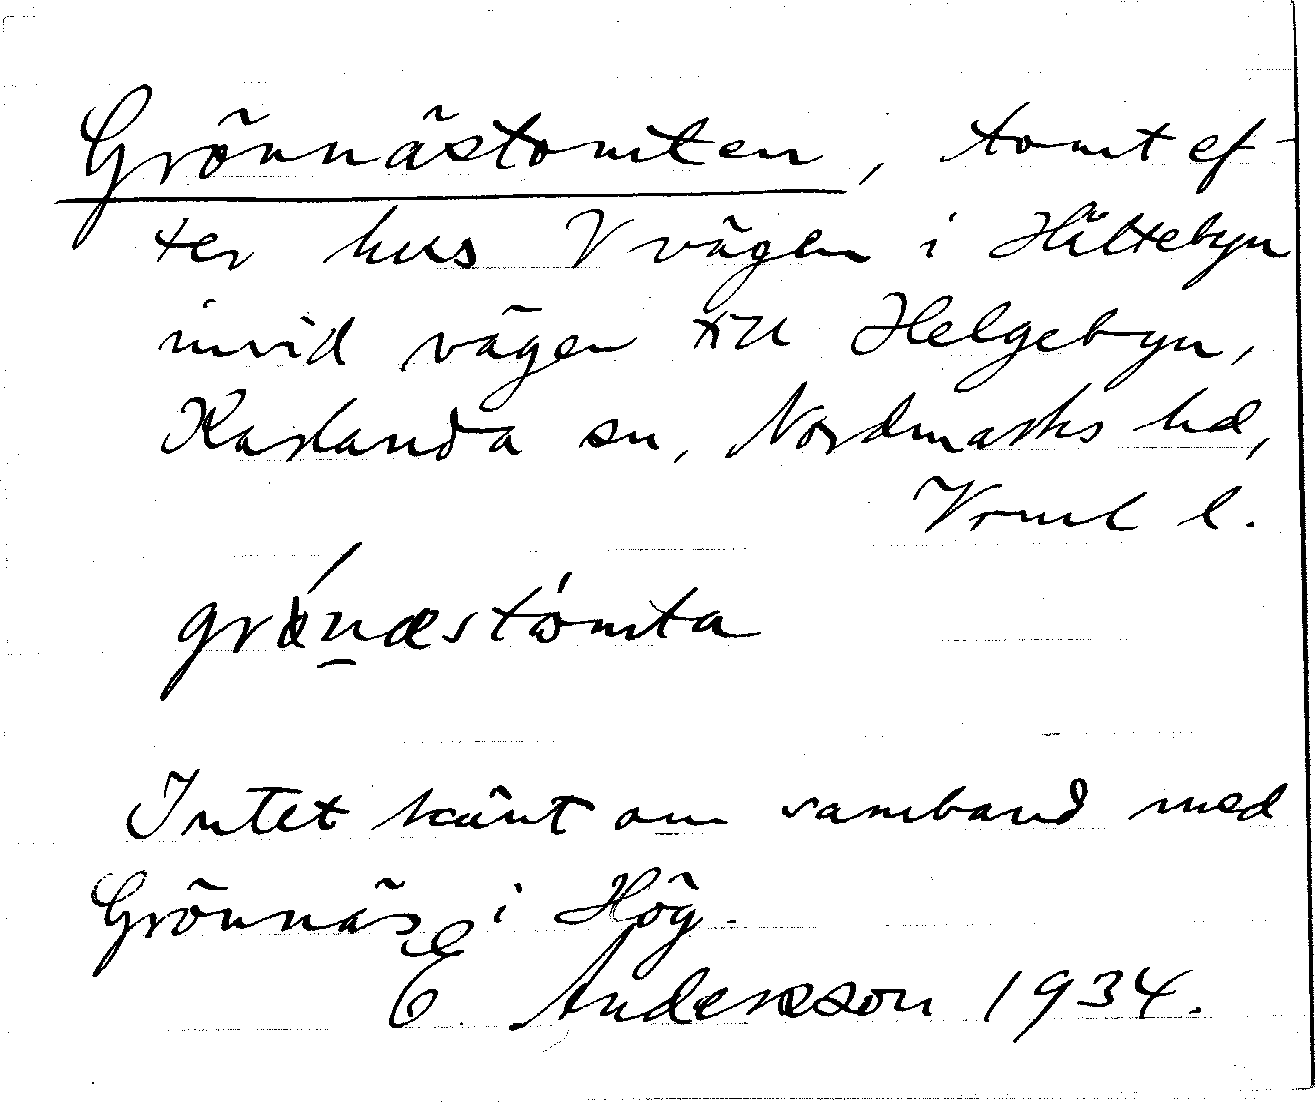 Grönnästomten, tomt ef-
ter hus V vägen i Hältebyn
invid vägen till Helgebyn,
Karlanda sn, Nordmarks hd,
Vrml l.
grǿnæstòmta
Intet känt om samband med
Grönnäs i Hög.
E. Andersson 1934.